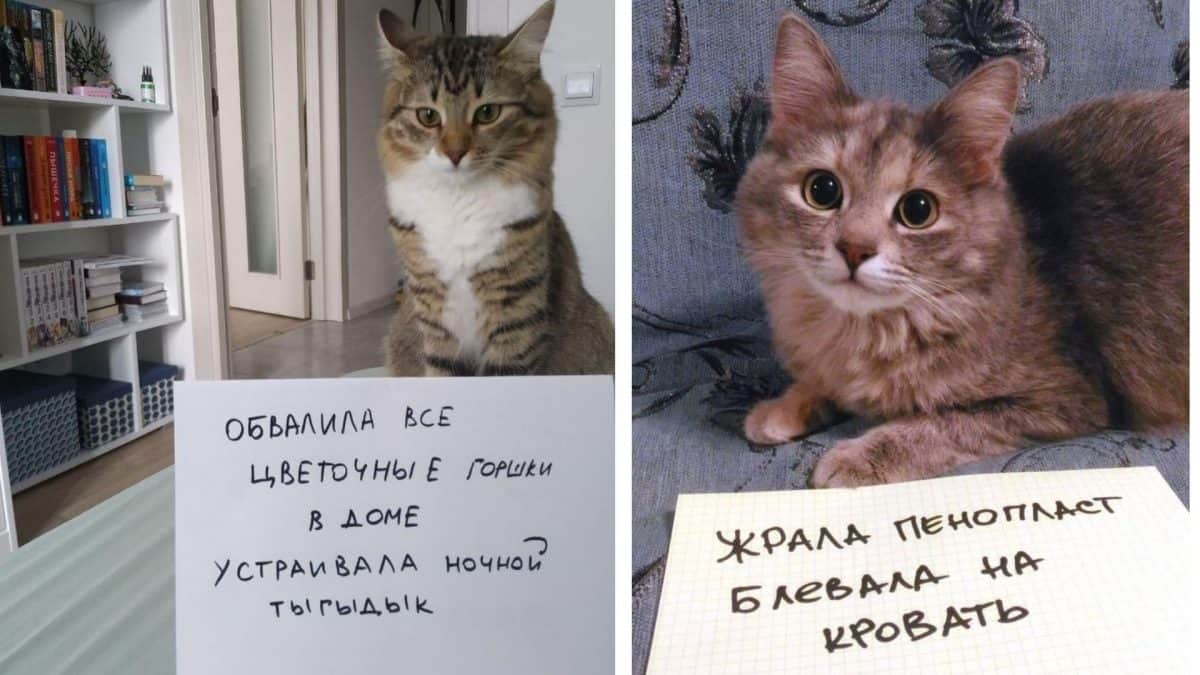 ОБВАЛИЛА ВСЕ
ЦВЕТОЧНЫЕ ГОРШКИ
В ДОМЕ
УСТРАИВАЛА НОЧНОЙ
ТЫГЫДЫК
ЖРАЛА ПЕНОПЛАСТ
БЛЕВАЛА НА
КРОВАТЬ